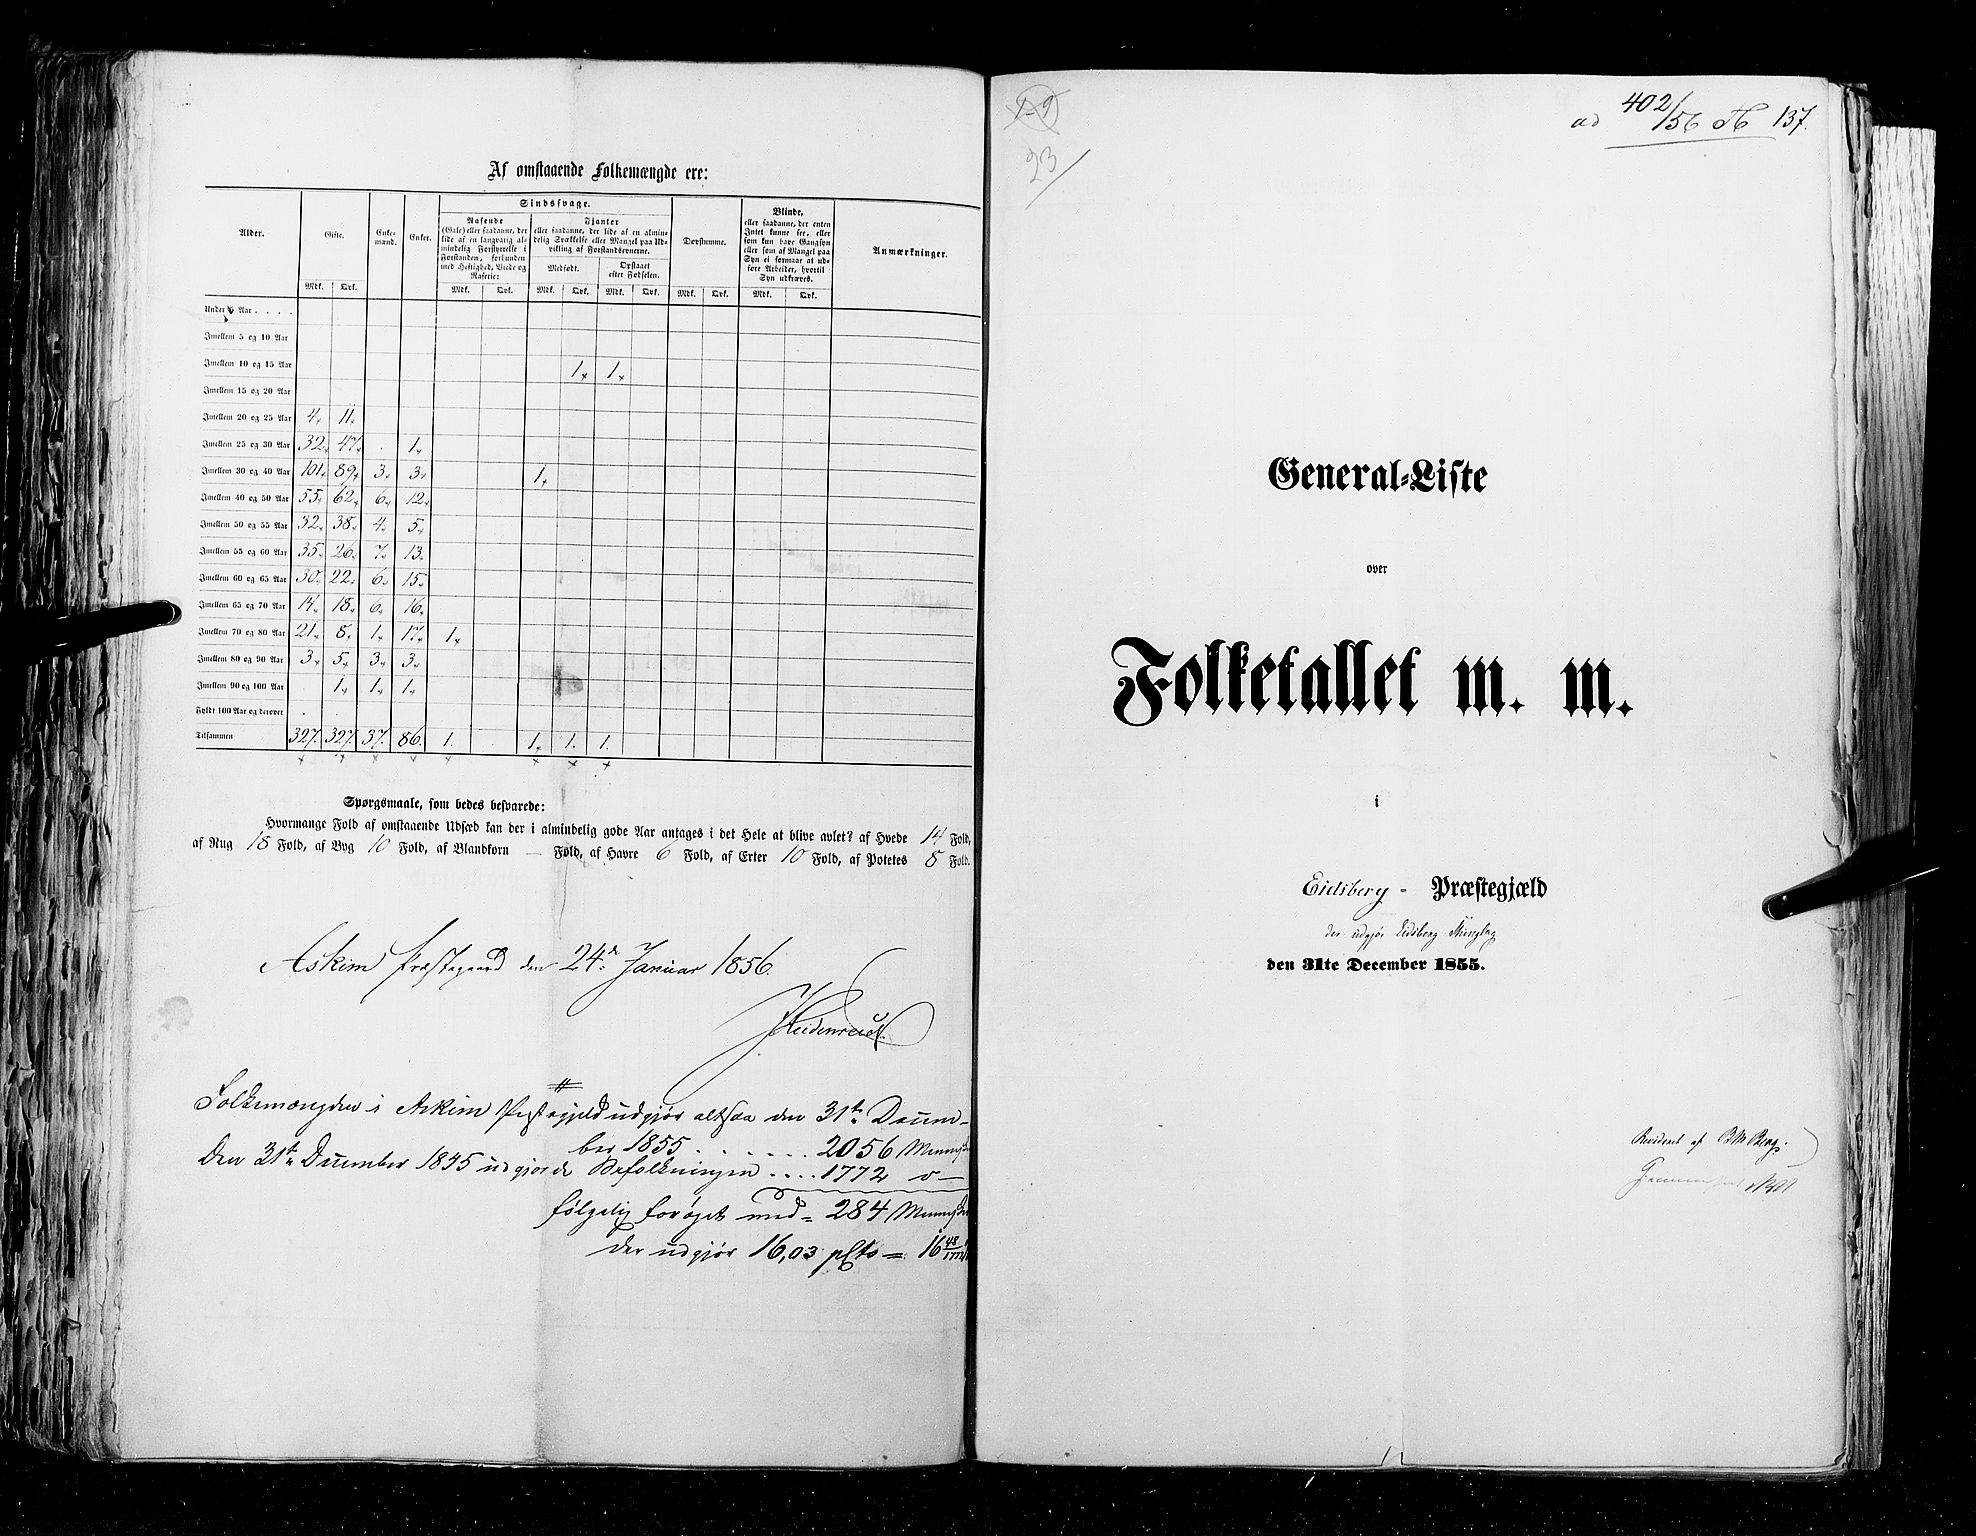 Af omstaaende Folkemængde ere:
Alder. Gifte. Enkemænd. Enker. Sindssvage. Døvstumme. Blinde, Anmærkninger.
Rasende
(Gale) eller saadanne, der
lide af en langvarig almindelig Forstyrrelse i
Forstanden, forbunden
med Heftighed, Vrede og
Raserie:
Fjanter
eller saadanne, der lide af en almindelig Svækkelse eller Mangel paa Udvikling af Forstandsevnerne.
Medfødt. Opstaaet efter Fødselen.
eller saadanne, der enten
Intet kunne see, eller
som kun have Gangsyn
eller som af Mangel paa
Syn ei formaae at udføre Arbeider, hvortil
Syn udkræves.
Mdk. Qvk. Mdk. Qvk. Mdk. Qvk. Mdk. Qvk. Mdk. Qvk. Mdk. Qvk.
Under 5 Aar . . . .
Imellem 5 og 10 Aar
Imellem 10 og 15 Aar 1 1
Imellem 15 og 20 Aar
Imellem 20 og 25 Aar 4 11
Imellem 25 og 30 Aar 32 47 . 1
Imellem 30 og 40 Aar 101 89 3 3 1
Imellem 40 og 50 Aar 55 62 6 12
Imellem 50 og 55 Aar 32 38 4 5
Imellem 55 og 60 Aar 35 26 7 13
Imellem 60 og 65 Aar 30 22 6 15
Imellem 65 og 70 Aar 14 18 6 16
Imellem 70 og 80 Aar 21 8 1 17 1
Imellem 80 og 90 Aar 3 5 3 3
Imellem 90 og 100 Aar . 1 1 1
Fyldt 100 Aar og derover
Tilsammen 327. 327. 37. 86. 1. . 1. 1. 1.
Spørgsmaale, som bedes besvarede:
Hvormange Fold af omstaaende Udsæd kan der i almindelig gode Aar antages i det Hele at blive avlet? af Hvede 14 Fold,
af Rug 18 Fold, af Byg 10 Fold, af Blandkorn — Fold, af Havre 6 Fold, af Erter 10 Fold, af Potetes 8 Fold.
Askim Præstegaard den 24de Januar 1856.
Heidenreich
Folkemængden i Askim Præstegjeld udgjør altsaa den 31te Decem-
ber 1855 . . . . . . 2056 Mennesker
Den 31te December 1845 udgjorde Befolkningen .... 1772 o—
følgelig forøget med = 284 Mennesker
der udgjør 16,03 pCto = 16 48/1772
1-9
23
ad 402/56 137.
General-Liste
over
Folketallet m. m.
i
Eidsberg - Præstegjæld
der udgjør Eidsberg Thinglag
den 31te December 1855.
Revideret af B M Berg.